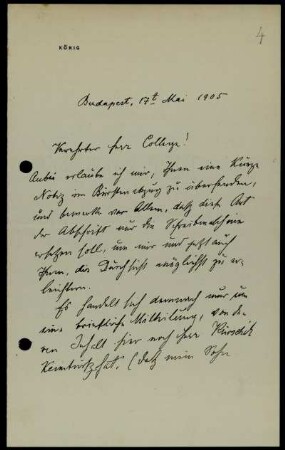 4
KÖNIG
Budapest, 17t Mai 1905
Verehrter Herr College!
Anbei erlaube ich mir, Ihnen eine kurze
Notiz im Bürstenabzug zu übersenden,
und bemerke vor Allem, daß diese Art
der Abschrift nur die Schreibmaschine
ersetzen soll, um mir und jetzt auch
Ihnen, die Durchsicht möglichst zu er-
leichtern.
Es handelt sich demnach nur um
eine briefliche Mitteilung, von de-
ren Inhalt hier noch Herr Kürschák
Kenntniß hat. (daß mein Sohn